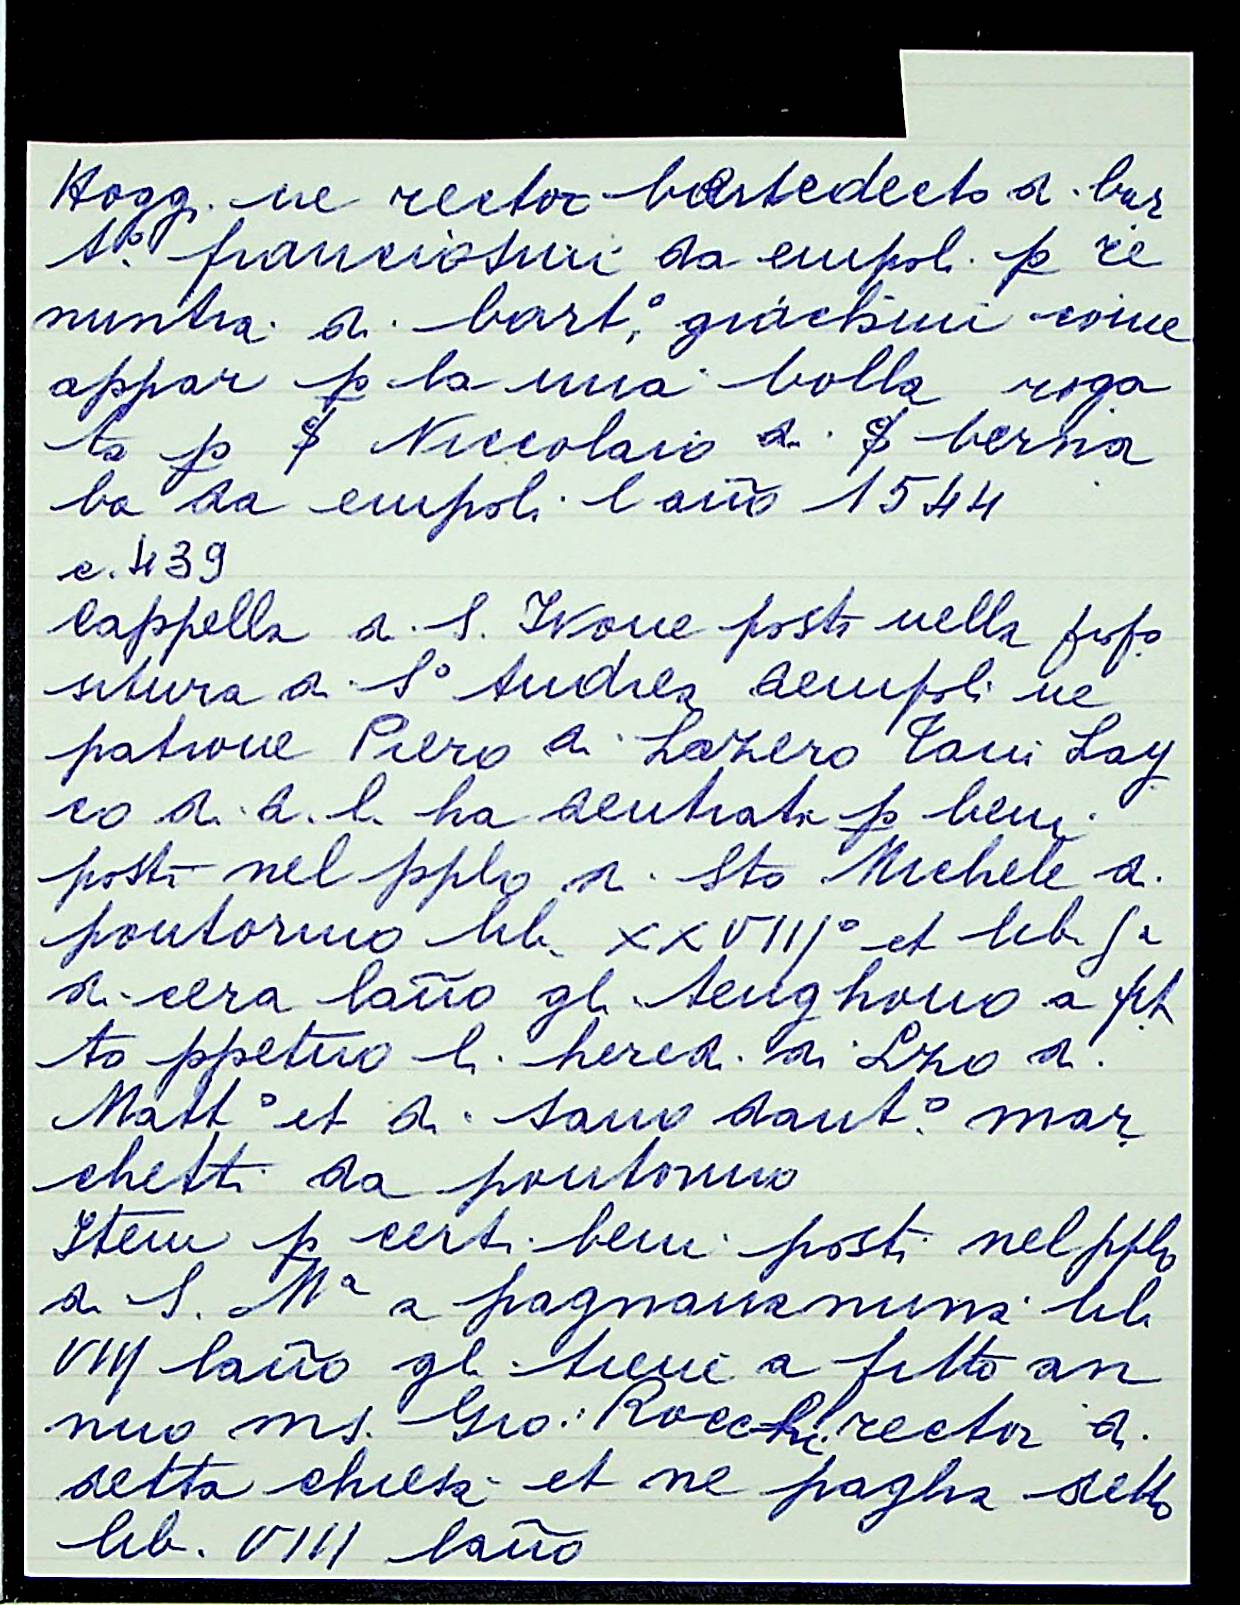 Hoggi ne rector benedecto di bar
t.º franciosini da empoli p re
nuntia di bart.º giachini come
appar p la una bolla roga
ta p § Niccolaio di § berna
ba da empoli l año 1544
c. 439
Cappella di S. Ivone posta nella propo
situra di S.º Andrea dempoli ne
patrone Piero di Lazero Tani Lay
co di d. l. ha dentrata p beni
posti nel pplo di Sto Michele di
pontormo lib. XXVIIIº et lib.
di cera laño gli tenghono a fit
to ppetuo li heredi di Lzo di
Matt.º et di sano dant.º mar
chetti da pontormo
Item p certi beni posti nel pplo
di S. Mª a pagnana mina lib.
VIII laño gli tiene a fitto an
nuo ms. Gio: Rocchi rector di
detta chiesa et ne pagha detto
lib. VIII laño